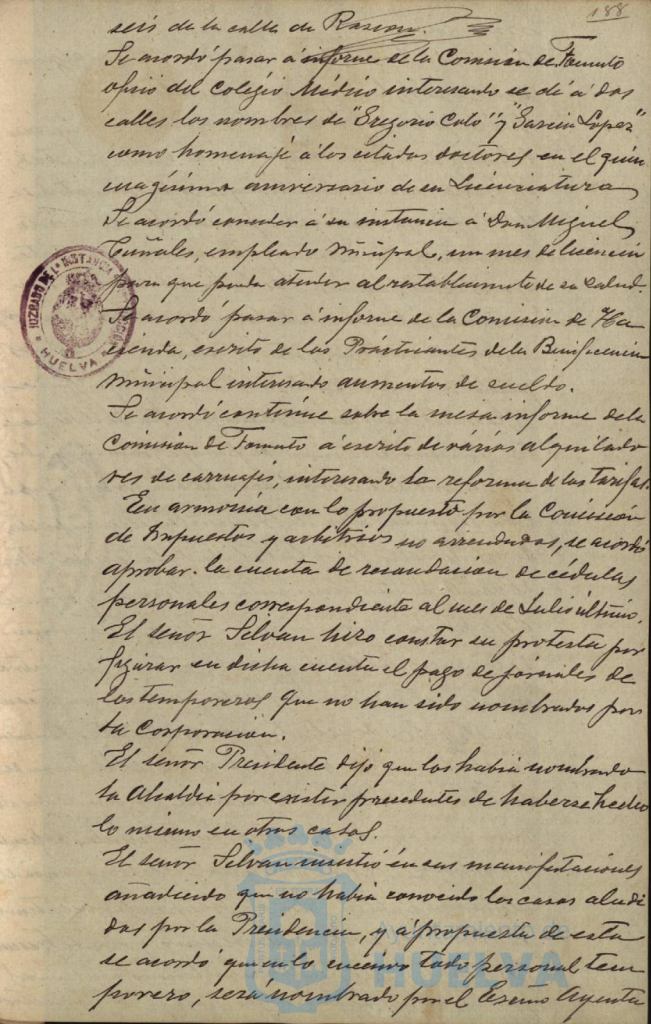 188
seis de la calle de Rascon.
Se acordó pasar á informe de la Comision de Fomento
ofició del Colégio Médico interesando se dé á dos
calles los nombres de "Gregorio Coto" y "Garcia Lopez"
como homenaje á los citados doctores en el quin
cuagésimo aniversario de su Licenciatura
Se acordó conceder á su instancia á Don Miguel
empleado municipal, un mes de licencia
para que pueda atender al restablecimiento de su salud.
Se acordó pasar á informe de la Comision de Ha
cienda, escrito de los Practicantes de la Beneficencia
Municipal interesando aumentos de sueldo.
Se acordó continúe sobre la mesa informe de la
Comision de Fomento á escrito de vários alquilado
res de carruajes, interesando la reforma de las tarifas.
En armonia con lo propuesto por la Comisión
de Impuestos y arbitrios no arrendados, se acordó
aprobar la cuenta de recaudacion de cédulas
personales correspondiente al mes de Julio último.
El señor Selvan hizo constar su protesta por
figurar en dicha cuenta el pago de jornales de
los temporeros que no han sido nombrados por
la Corporación.
El señor Presidente dijo que los habia nombrado
la Alcaldia por existir precedentes de haberse hecho
lo mismo en otros casos.
El señor Selvan insistió en sus manifestaciones
añadiendo que no habia conocido los casos aludi
dos por la Presidencia, y á propuesta de esta
se acordó que en lo sucesivo todo personal tem
porero, será nombrado por el Excmo Ayunta
JUZGADO DE 1ª INSTANCIA
HUELVA
HUELVA